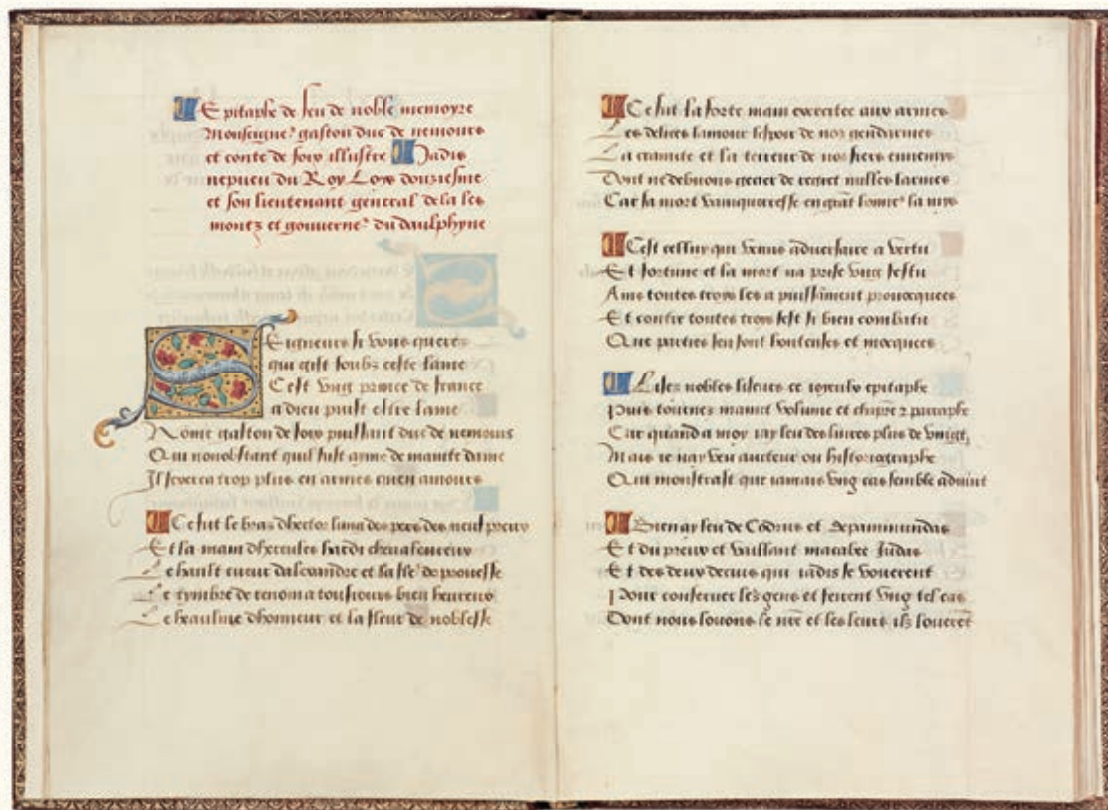 LEpitaphe de feu de noble memoyre
Monseigneʳ gaston duc de nemours
et conte de foix illustre Jadis
nepueu du Roy Loys douziesme
et son lieutenant general dela les
montz et gouuerneʳ du daulphyne
SEigneurs se vous queres
qui gist soubz ceste lame
Cest vng prince de france
a dieu puist estre lame
Nome gaston de foix puissant duc de nemours
Qui nonobstant quil fust ayme de mainte dame
Il seuera trop plus en armes quen amours
Ce fut le bras dhector lung des pers des neuf preux
Et la main dhercules hardi cheualeureux
Le hault cueur dalexandre et la de prouesse
Le tymbre de renom a tousiours bien heureux
Le heaulme dhonneur et la fleur de noblesse
Ce fut la forte main exercitee aux armes
Les delices lamour lespoir de noz gendarmes
La craincte et la terreur de nos fiers ennemys
Dont ne debuons gecter de regret milles larmes
Car la mort vainqueresse en grāt honneʳ la mys
Cest celluy qui venus aduersaire a vertu
Et fortune et la mort na prise vng festu
Ains toutes troys les a puissāment prouocquees
Et contre toutes troys sest si bien combatu
Que parties sen sont honteuses et mocquees
Lisez nobles liseurs ce epitaphe
Puis tournes maint volume et chapʳe paraphe
Car quand a moy iay leu des liures plus de vingt
Mais ie nay veu aucteur ou historiographe
Qui monstrast que iamais vng cas semble aduint
Bien ay leu de Codrus et depaminundas
Et du preux et vaillant macabee Judas
Et des deux decius qui iadis se vouerent
Pour conseruer les gens et feirent vng tel cas
Dont nous louons le nr̄e et les leurs ilz louerēt